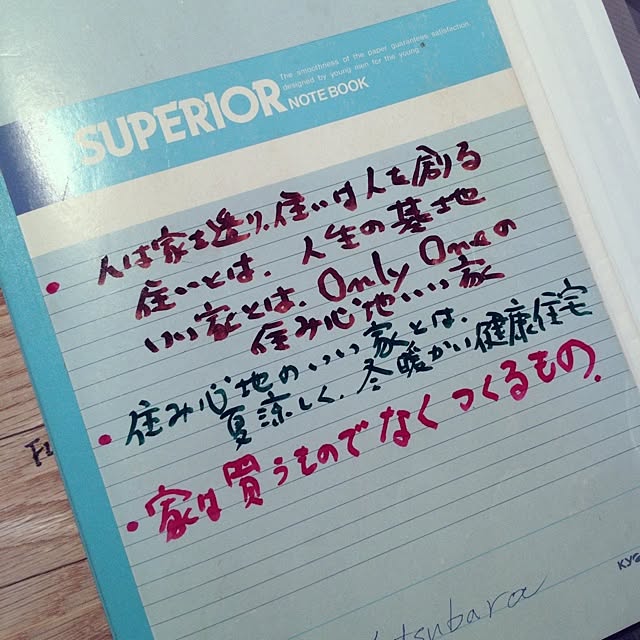 SUPERIOR
The smoothness of the paper guarantees satisfaction
designed by young men for the young
NOTE BOOK
・人は家を造り、住いは人を創る
住いとは、人生の基地
いい家とは、Only Oneの
住み心地いい家
・住み心地のいい家とは、
夏涼しく、冬暖かい健康住宅
・家は買うものでなくつくるもの.